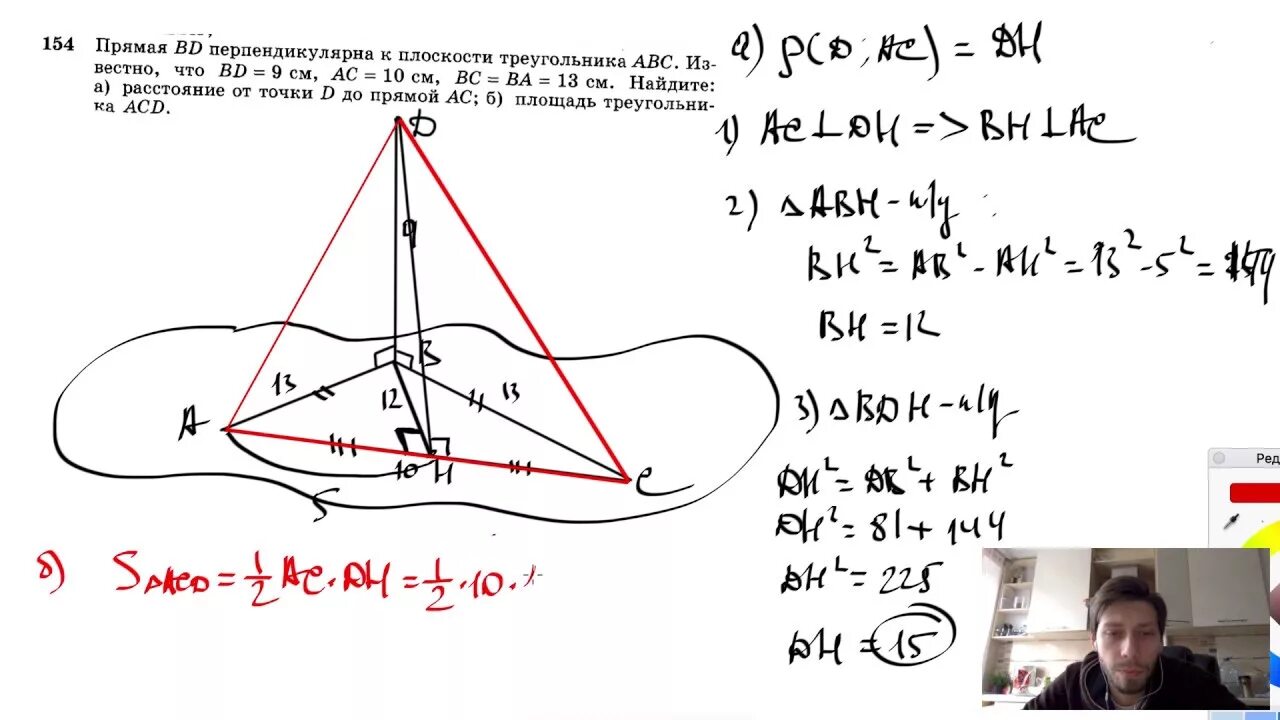 154 Прямая BD перпендикулярна к плоскости треугольника ABC. Из-
вестно, что BD = 9 см, AC = 10 см, BC = BA = 13 см. Найдите:
а) расстояние от точки D до прямой AC; б) площадь треугольни-
ка ACD.
а) ρ(D; AC) = DH
1) AC ⊥ DH => BH ⊥ AC
2) △ABH - п/у :
BH² = AB² - AH² = 13² - 5² =
BH = 12
3) △BDH - п/у
DH² = DB² + BH²
DH² = 81 + 144
DH² = 225
DH = 15
D
9
B
13
12
13
A
10
H
C
5
б) S△ACD = 1/2 AC · DH = 1/2 · 10 ·
Ред